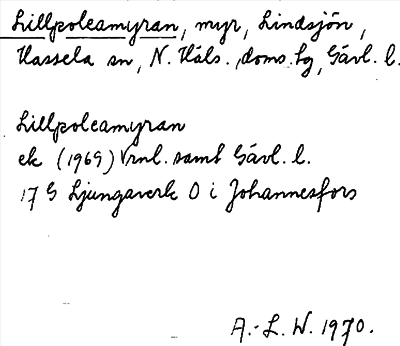 Lillpoleamyran, myr, Lindsjön,
Hassela sn, N. Häls. doms.sg, Gävl. l.
Lillpoleamyran
ek (1969) Vrnl. samt Gävl. l.
17 G Ljungaverk O i Johannesfors
A.-L. W. 1970.